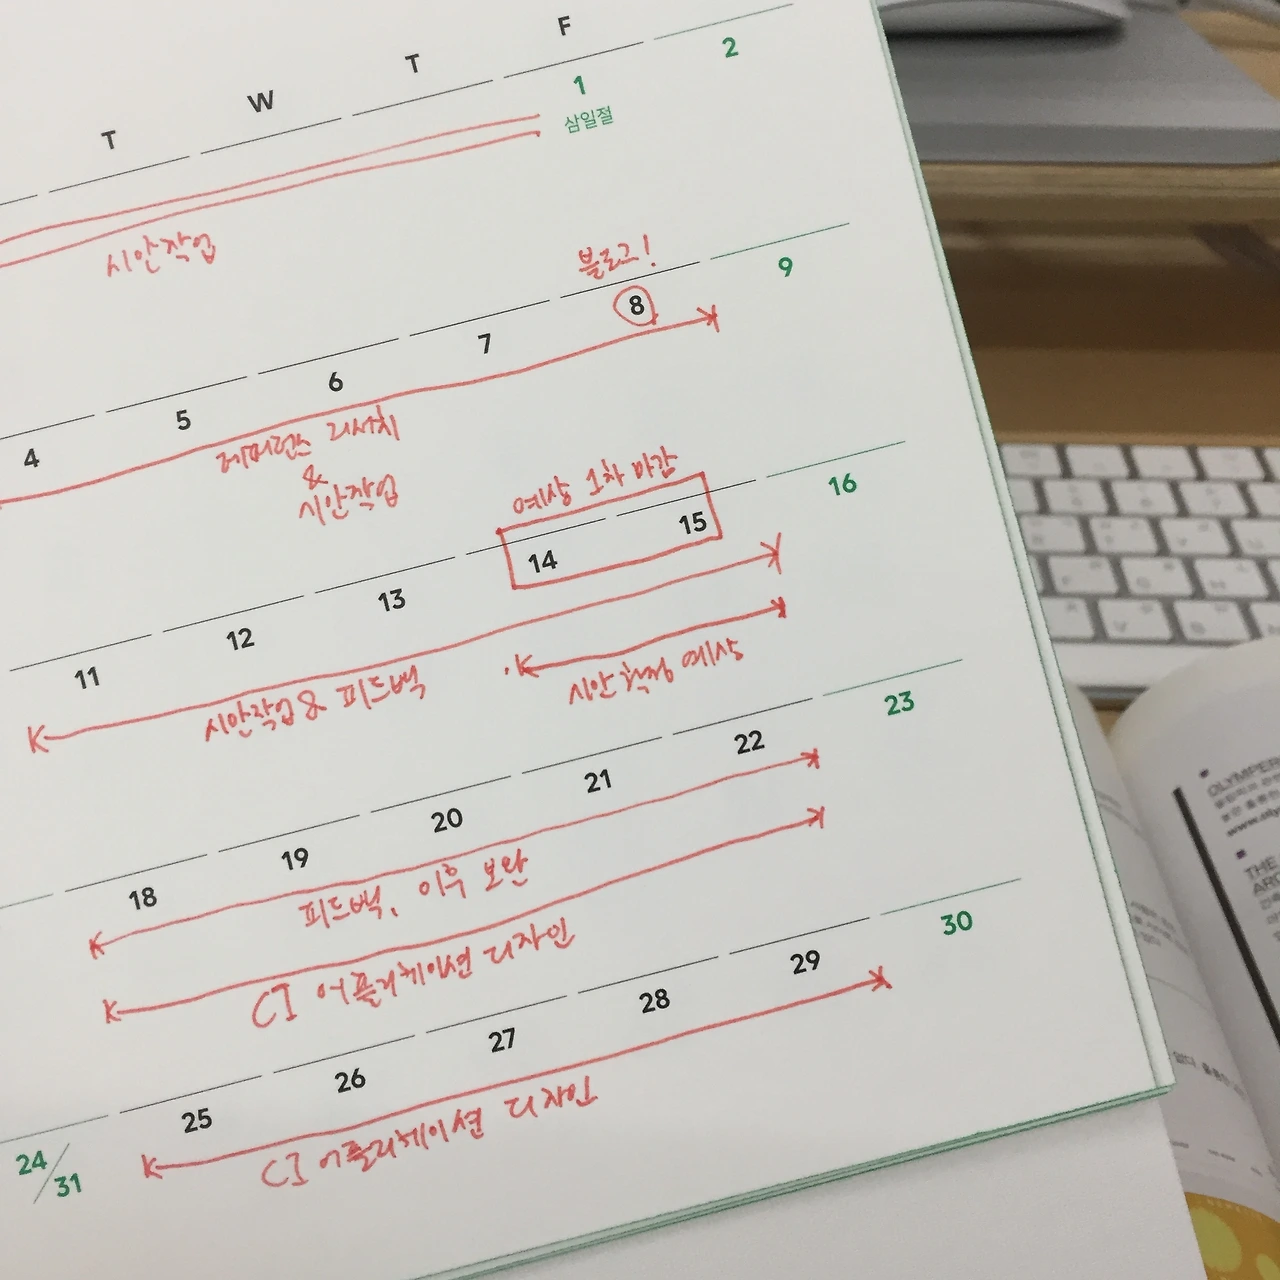 T W T F
1 2
삼일절
시안작업
블로그!
4 5 6 7 8 9
레퍼런스 리서치
&
시안작업
예상 1차 마감
11 12 13 14 15 16
시안작업 & 피드백
시안 예상
18 19 20 21 22 23
피드백, 이후 보완
CI 어플리케이션 디자인
24/31 25 26 27 28 29 30
CI 어플리케이션 디자인
OLYMPE
THE